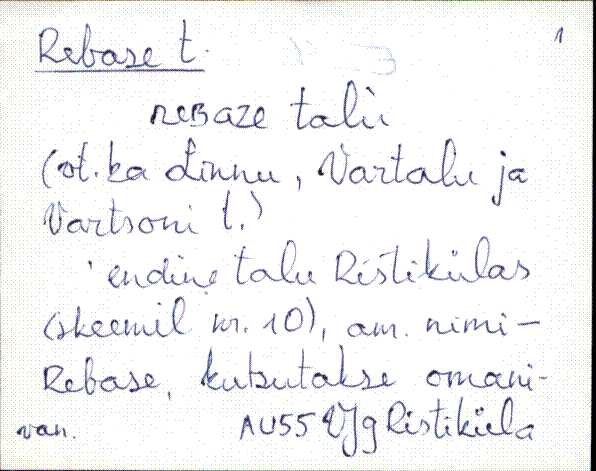 Rebase t. 1
REBAZE talu
(vt. ka Linnu, Vartalu ja
Vartsoni t.)
endine talu Ristikülas
(skeemil nr. 10), am. nimi-
Rebase, kutsutakse omani-
van. AU55 Vjg Ristiküla